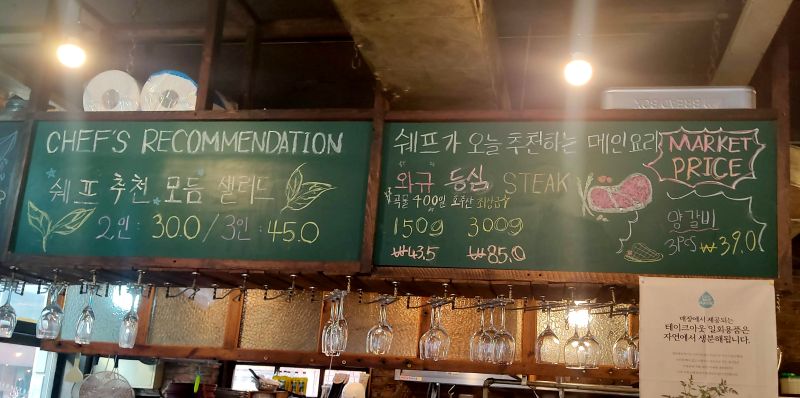 CHEF'S RECOMMENDATION
쉐프 추천 모듬 샐러드
2인 : 30.0 / 3인 : 45.0
쉐프가 오늘 추천하는 메인요리
MARKET
PRICE
와규 등심 STEAK
곡물 400일 호주산 최상급
150g 300g
₩43.5 ₩85.0
양갈비
3pcs ₩39.0
BREAD BOX
매장에서 제공되는
테이크아웃 일회용품은
자연에서 생분해됩니다.